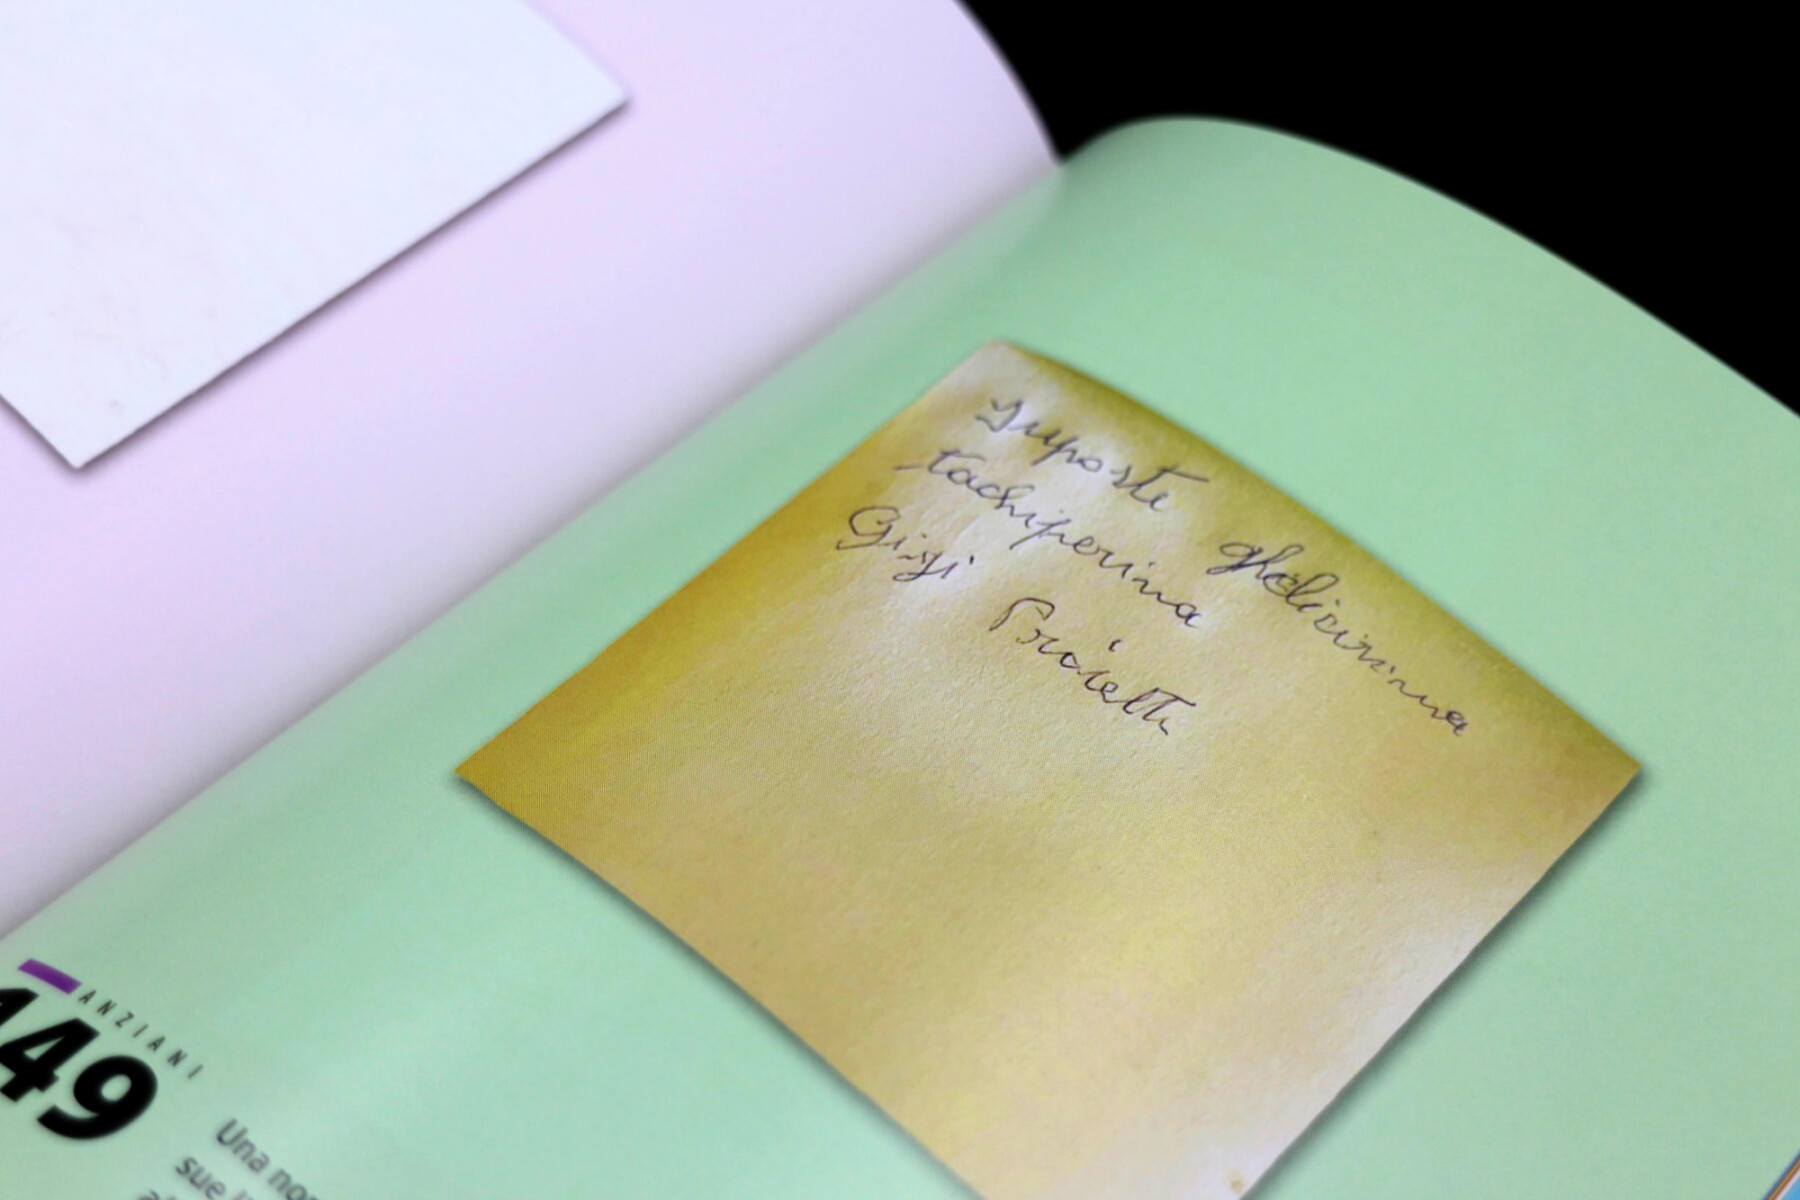 Supposte ghilicirinna
tachiperina
Gigi Proietti
ANZIANI
149
Una non
sue